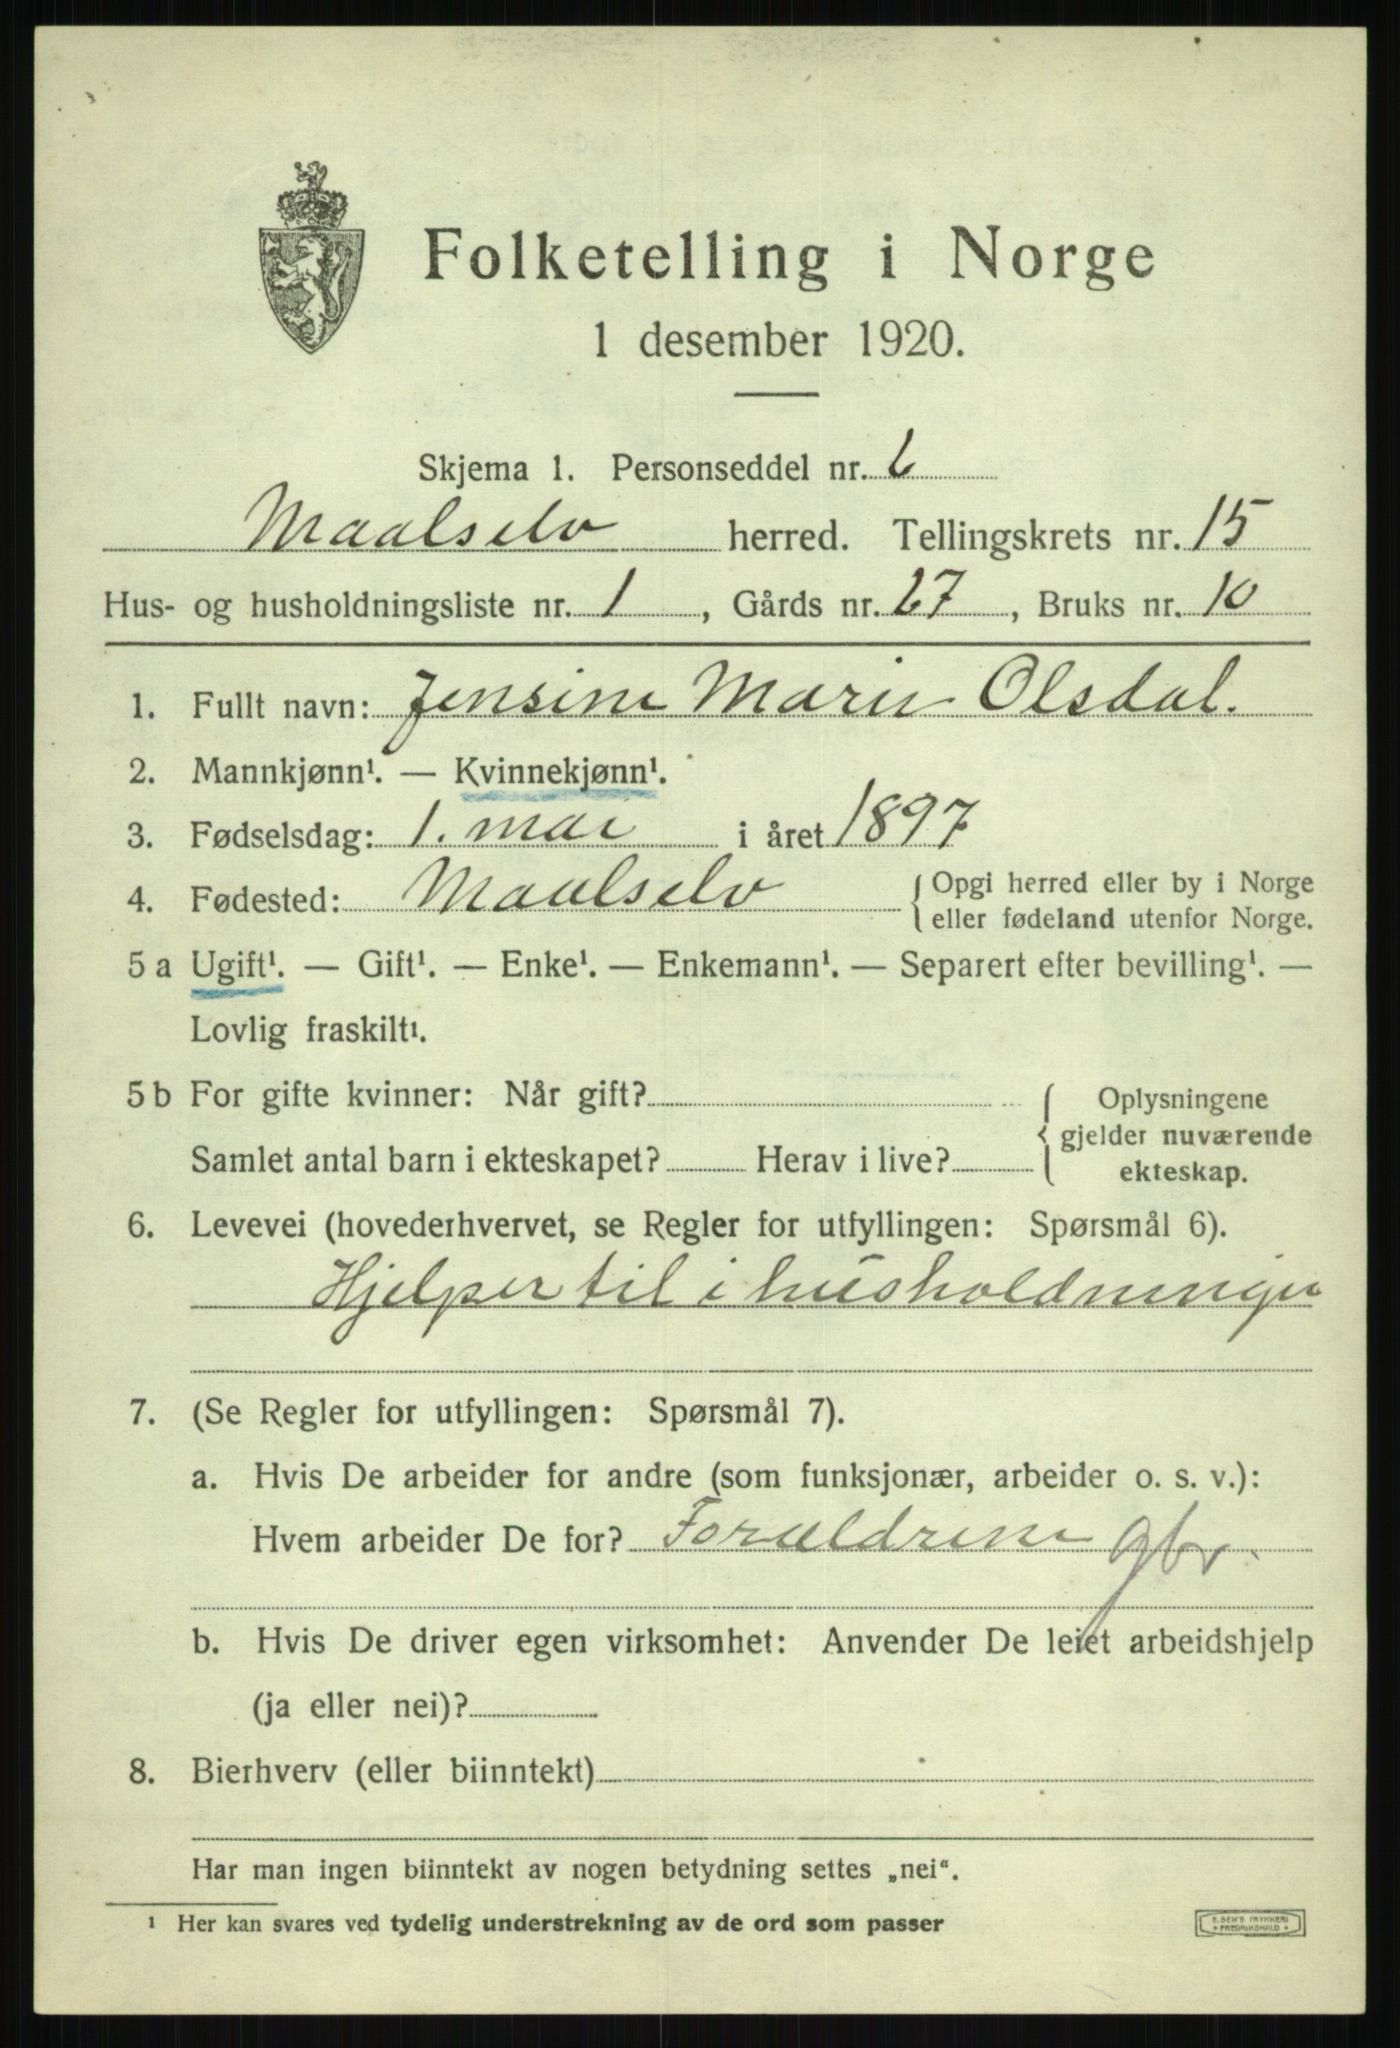 Folketelling i Norge
1 desember 1920.
Skjema 1. Personseddel nr. 6
Maalselv herred. Tellingskrets nr. 15
Hus- og husholdningsliste nr. 1, Gårds nr. 27, Bruks nr. 10
1. Fullt navn: Jensine Marie Olsdal.
2. Mannkjønn¹. — Kvinnekjønn¹.
3. Fødselsdag: 1. mai i året 1897
4. Fødested: Maalselv { Opgi herred eller by i Norge
eller fødeland utenfor Norge.
5 a Ugift¹. — Gift¹. — Enke¹. — Enkemann¹. — Separert efter bevilling¹. —
Lovlig fraskilt¹.
5 b For gifte kvinner: Når gift? { Oplysningene
gjelder nuværende
Samlet antal barn i ekteskapet? Herav i live? ekteskap.
6. Levevei (hovederhvervet, se Regler for utfyllingen: Spørsmål 6).
Hjelper til i husholdningen
7. (Se Regler for utfyllingen: Spørsmål 7).
a. Hvis De arbeider for andre (som funksjonær, arbeider o. s. v.):
Hvem arbeider De for? Forældrene gbr.
b. Hvis De driver egen virksomhet: Anvender De leiet arbeidshjelp
(ja eller nei)?
8. Bierhverv (eller biinntekt)
Har man ingen biinntekt av nogen betydning settes „nei“.
¹ Her kan svares ved tydelig understrekning av de ord som passer
E. SEM'S TRYKKERI
* FREDRIKSHALD *